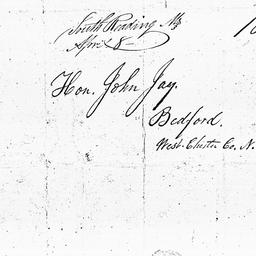 South Reading Ms
April 8
10
Hon. John Jay.
Bedford.
West-Chester Co. N.